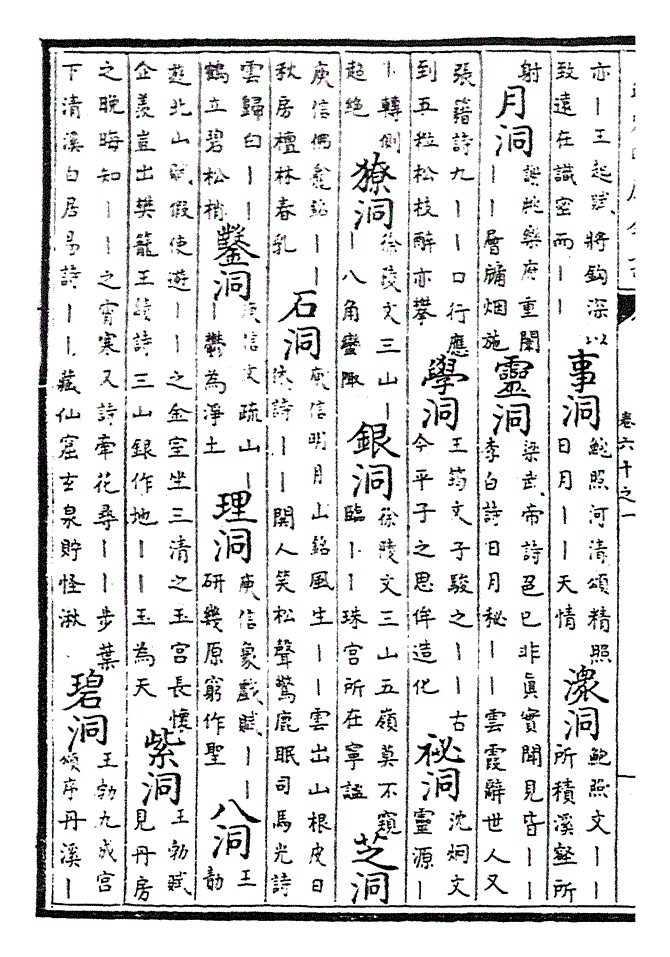 亦｜王起賦將鈎深以
致遠在識密而｜｜
事洞
鮑照河清頌精照
日月｜｜天情
潀洞
鮑照文｜｜
所積溪壑所
射
月洞
謝朓樂府重闈
｜｜層牖烟施
靈洞
梁武帝詩邑巳非真實聞見皆｜｜
李白詩日月秘｜｜雲霞辭世人又
張籍詩九｜｜口行應
到五粒松枝醉亦攀
學洞
王筠文子駿之｜｜古
今平子之思侔造化
祕洞
沈炯文
靈源｜
｜轉側
超絶
獠洞
徐陵文三山｜
｜八角蠻陬
銀洞
徐陵文三山五嶺莫不窺
臨｜｜珠宮所在寧謐
芝洞
庾信佛龕銘｜｜
秋房檀林春乳
石洞
庾信明月山銘風生｜｜雲出山根皮日
休詩｜｜開人笑松聲驚鹿眠司馬光詩
雲歸白｜｜
鶴立碧松梢
鑿洞
庾信文疏山｜
｜鬱為淨土
理洞
庾信象戲賦｜｜
研幾原窮作聖
八洞
王
勃
遊北山賦假使遊｜｜之金室坐三清之玉宮長懷
企羨豈出樊籠王績詩三山銀作地｜｜玉為天
紫洞
王勃賦
見丹房
之晚晦知｜｜之宵寒又詩牽花尋｜｜步葉
下清溪白居易詩｜｜｜藏仙窟玄泉貯怪湫
碧洞
王勃九成宮
頌序丹溪｜
卷六十之一